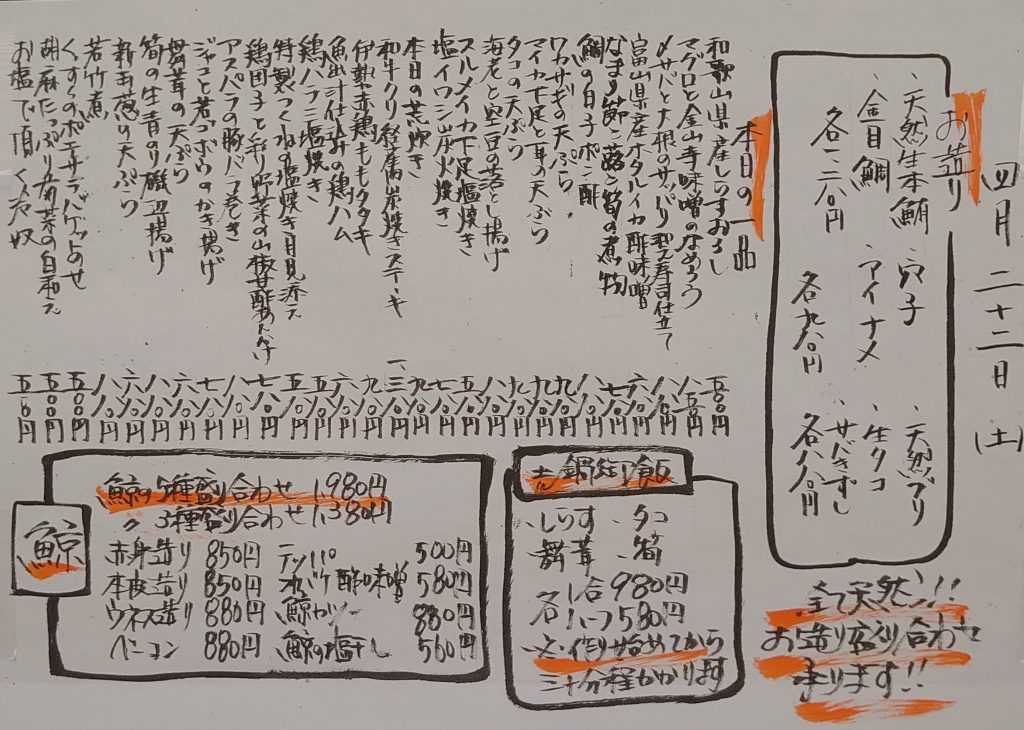 四月二十二日(土)
お造り
・天然生本鮪
・金目鯛
各一、二八〇円
・穴子
・アイナメ
各九八〇円
・天然ブリ
・生タコ
・サバきずし
各八八〇円
全て天然!!
お造り盛り合わせ
承ります!!
本日の一品
和歌山県産しらすおろし 五八〇円
マグロと金山寺味噌のなめろう 八五〇円
〆サバと大根のサッパリ押し寿司仕立て 八八〇円
富山県産ホタルイカ酢味噌 六八〇円
なまり節と蕗と筍の煮物 七八〇円
鯛の白子ポン酢 八八〇円
ワカサギの天ぷら 九八〇円
マイカ下足と耳の天ぷら 九八〇円
タコの天ぷら 九八〇円
海老と空豆の落とし揚げ 八八〇円
スルメイカ下足塩焼き 五八〇円
塩イワシ炭火焼き 七八〇円
本日の荒炊き 九八〇円
和牛クリ 炭焼きステーキ 一、三八〇円
伊勢赤鶏ももタタキ 九八〇円
魚出汁仕込みの鶏ハム 六八〇円
鶏ハラミ塩焼き 五八〇円
特製つくねの塩焼き月見添え 五八〇円
鶏団子と彩り野菜の山椒甘酢あんかけ 七八〇円
アスパラの豚バラ巻き 八八〇円
ジャコと若ゴボウのかき揚げ 七八〇円
舞茸の天ぷら 六八〇円
筍の生青のり磯辺揚げ 八八〇円
新玉葱の天ぷら 六八〇円
若竹煮 八八〇円
くずくのポテサラバゲットのせ 五八〇円
胡麻たっぷり春菜の白和え 五八〇円
お塩で頂く冷奴 五八〇円
土鍋釜飯
・しらす ・タコ
・舞茸 ・筍
各 一合 980円
ハーフ 580円
※作り始めてから
三十分程かかります
鯨
鯨の5種盛り合わせ 1,980円
〃 3種盛り合わせ 1,380円
赤身造り 850円 テッパ゜ 500円
本皮造り 850円 オバケ酢味噌 580円
ウネス造り 880円 鯨カツ 880円
ベーコン 880円 鯨の塩干し 560円